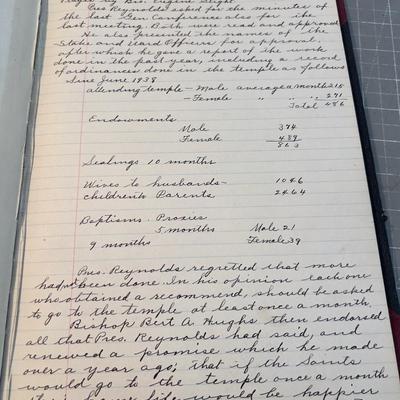 Prayer by Bro. Eugene Seight.
Pres Reynolds asked for the minutes of
the last Gen Conference also for the
last meeting. Both were read and approved
He also presented the names of the
Stake and Ward Officers for approval.
after which he gave a report of the work
done in the past year, including a record
of ordinances done in the temple as follows
Since June 1938
attending temple - Male average a month 215
- Female " " " 271
Total 486
Endowments
Male 374
Female 489
863
Sealings 10 months
Wives to husbands - 1046
children Parents 2464
Baptisms Proxies
5 months Male 21
9 months Female 39
Pres. Reynolds regretted that more
had not been done. In his opinion each one
who obtained a recommend, should be asked
to go to the temple at least once a month.
Bishop Bert A. Hughs then endorsed
all that Pres. Reynolds had said, and
renewed a promise which he made
over a year ago; that if the Saints
would go to the temple once a month
life would be happier